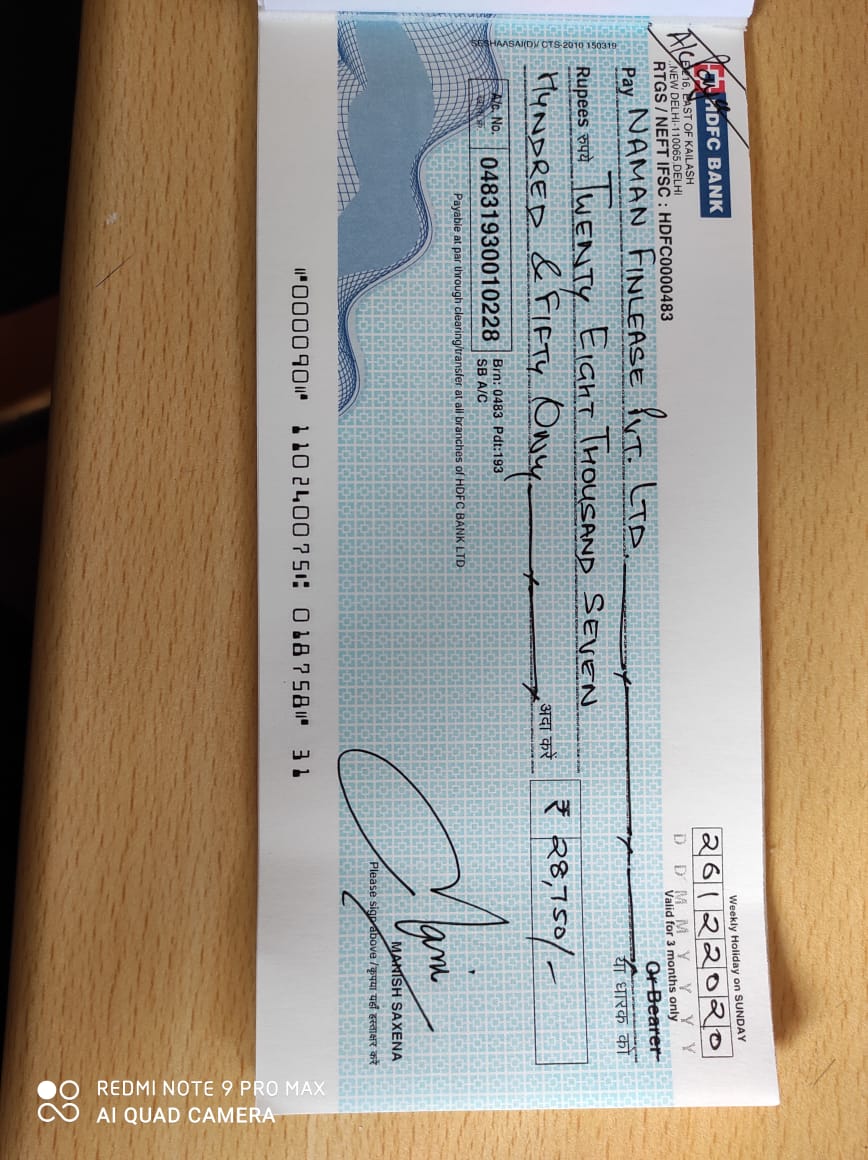 A/c Payee
HDFC BANK
EAST OF KAILASH
NEW DELHI-110065, DELHI
RTGS / NEFT IFSC : HDFC0000483
Weekly Holiday on SUNDAY
26122020
D D M M Y Y Y Y
Valid for 3 months only
Pay NAMAN FINLEASE PVT. LTD.
Or Bearer
या धारक को
Rupees रुपये TWENTY EIGHT THOUSAND SEVEN
HUNDRED & FIFTY ONLY
अदा करें
₹ 28,750/-
A/c. No.
04831930010228
Brn: 0483 Pdt:193
SB A/C
Payable at par through clearing/transfer at all branches of HDFC BANK LTD
SESHAASAI(D)/ CTS-2010 150319
Mani
MANISH SAXENA
Please sign above / कृपया यहाँ हस्ताक्षर करें
⑈000090⑈ 110240075⑆ 018758⑈ 31
REDMI NOTE 9 PRO MAX
AI QUAD CAMERA